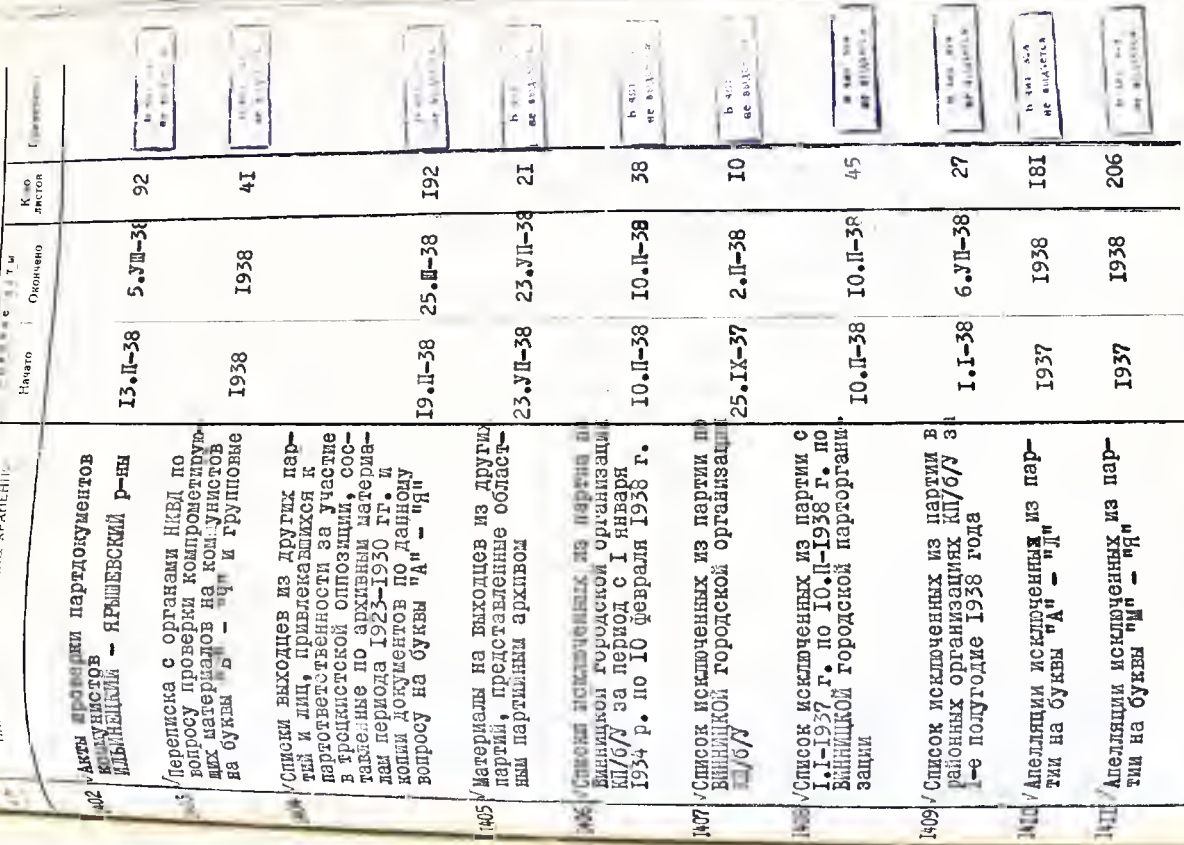 Начато
Окончено
К-во
листов
1402 √Акты проверки партдокументов
коммунистов
ИЛЬИНЕЦКИЙ – ЯРЫШЕВСКИЙ р-ны
I3.П-38 5.УШ-38 92
√Переписка с органами НКВД по
вопросу проверки компрометирую-
щих материалов на коммунистов
на буквы – "Ч" и групповые
I938 I938 4I
√Списки выходцев из других пар-
тий и лиц, привлекавшихся к
партответственности за участие
в троцкистской оппозиции, сос-
тавленные по архивным материа-
лам периода I923-I930 гг. и
копии документов по данному
вопросу на буквы "А" – "Я"
I9.П-38 25.Ш-38 I92
I405 √Материалы на выходцев из других
партий, представленные област-
ным партийным архивом
23.УП-38 23.УП-38 2I
√Списки исключенных из партии по
Винницкой городской организации
КП/б/У за период с I января
I934 г. по IO февраля I938 г.
IO.П-38 IO.П-38 38
I407 √Список исключенных из партии по
Винницкой городской организации
КП/б/У
25.IX-37 2.П-38 IO
I408 √Список исключенных из партии с
I.I-I937 г. по IO.П-I938 г. по
Винницкой городской парторгани-
зации
IO.П-38 IO.П-38 45
I409 √Список исключенных из партии в
районных организациях КП/б/У за
I-е полугодие I938 года
I.I-38 6.УП-38 27
I4IO √Апелляции исключенных из пар-
тии на буквы "А" – "Л"
I937 I938 I8I
не выдается
I4II √Апелляции исключенных из пар-
тии на буквы "М" – "Я"
I937 I938 206